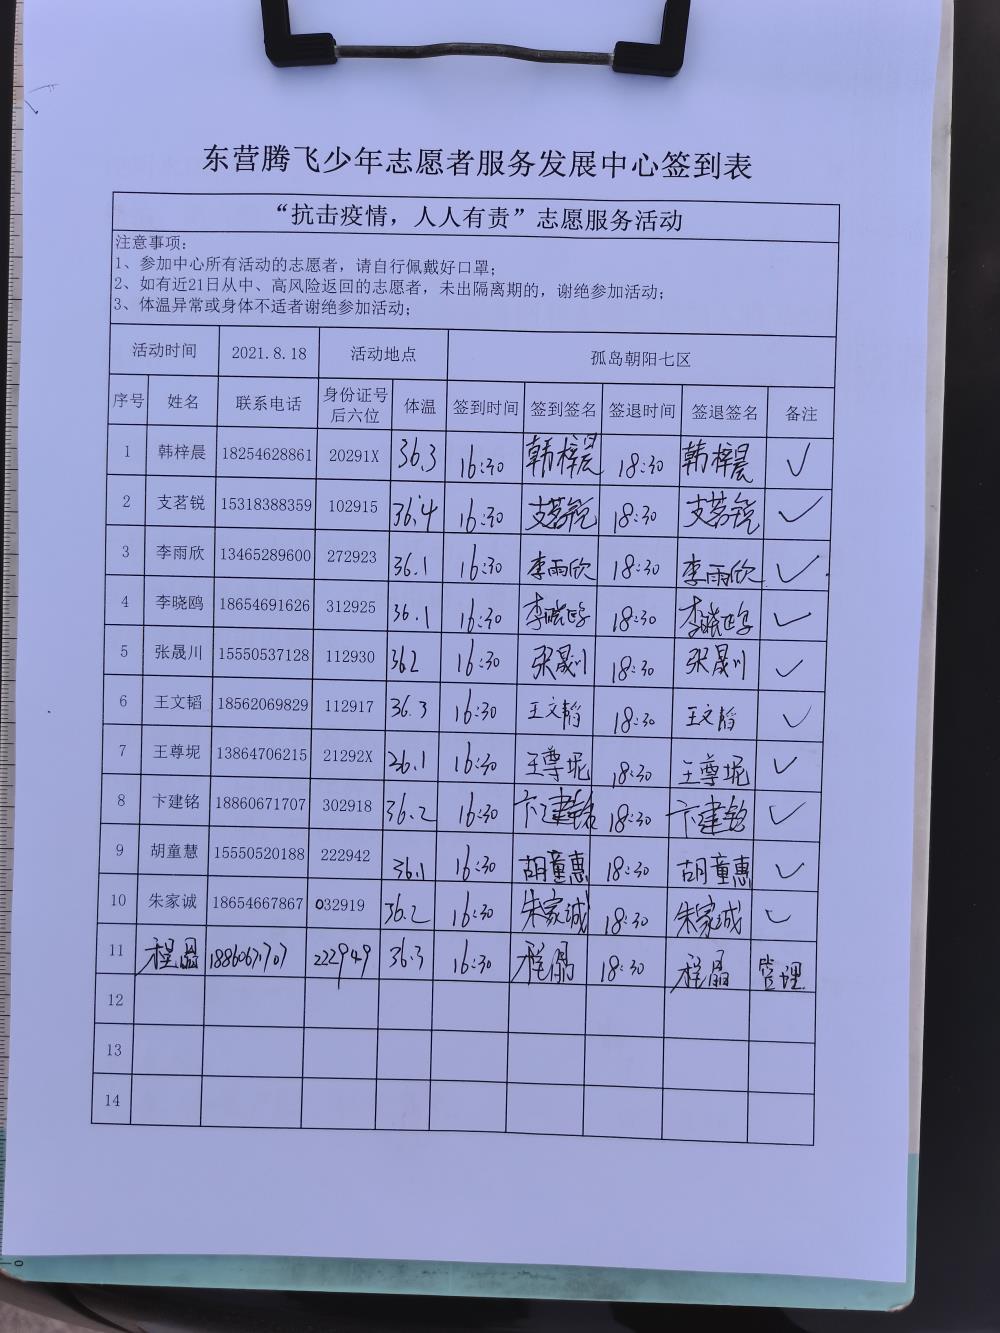 东营腾飞少年志愿者服务发展中心签到表
“抗击疫情，人人有责”志愿服务活动
注意事项：
1、参加中心所有活动的志愿者，请自行佩戴好口罩；
2、如有近21日从中、高风险返回的志愿者，未出隔离期的，谢绝参加活动；
3、体温异常或身体不适者谢绝参加活动；
活动时间 2021.8.18 活动地点 孤岛朝阳七区
序号 姓名 联系电话 身份证号后六位 体温 签到时间 签到签名 签退时间 签退签名 备注
1 韩梓晨 18254628861 20291X 36.3 16:30 韩梓晨 18:30 韩梓晨 ✓
2 支茗锐 15318388359 102915 36.4 16:30 支茗锐 18:30 支茗锐 ✓
3 李雨欣 13465289600 272923 36.1 16:30 李雨欣 18:30 李雨欣 ✓
4 李晓鸥 18654691626 312925 36.1 16:30 李晓鸥 18:30 李晓鸥 ✓
5 张晟川 15550537128 112930 362 16:30 张晟川 18:30 张晟川 ✓
6 王文韬 18562069829 112917 36.3 16:30 王文韬 18:30 王文韬 ✓
7 王尊坭 13864706215 21292X 36.1 16:30 王尊坭 18:30 王尊坭 ✓
8 卞建铭 18860671707 302918 36.2 16:30 卞建铭 18:30 卞建铭 ✓
9 胡童慧 15550520188 222942 36.1 16:30 胡童惠 18:30 胡童惠 ✓
10 朱家诚 18654667867 032919 36.2 16:30 朱家诚 18:30 朱家诚 ✓
11 程晶 18860671707 222949 36.3 16:30 程晶 18:30 程晶 管理
12
13
14